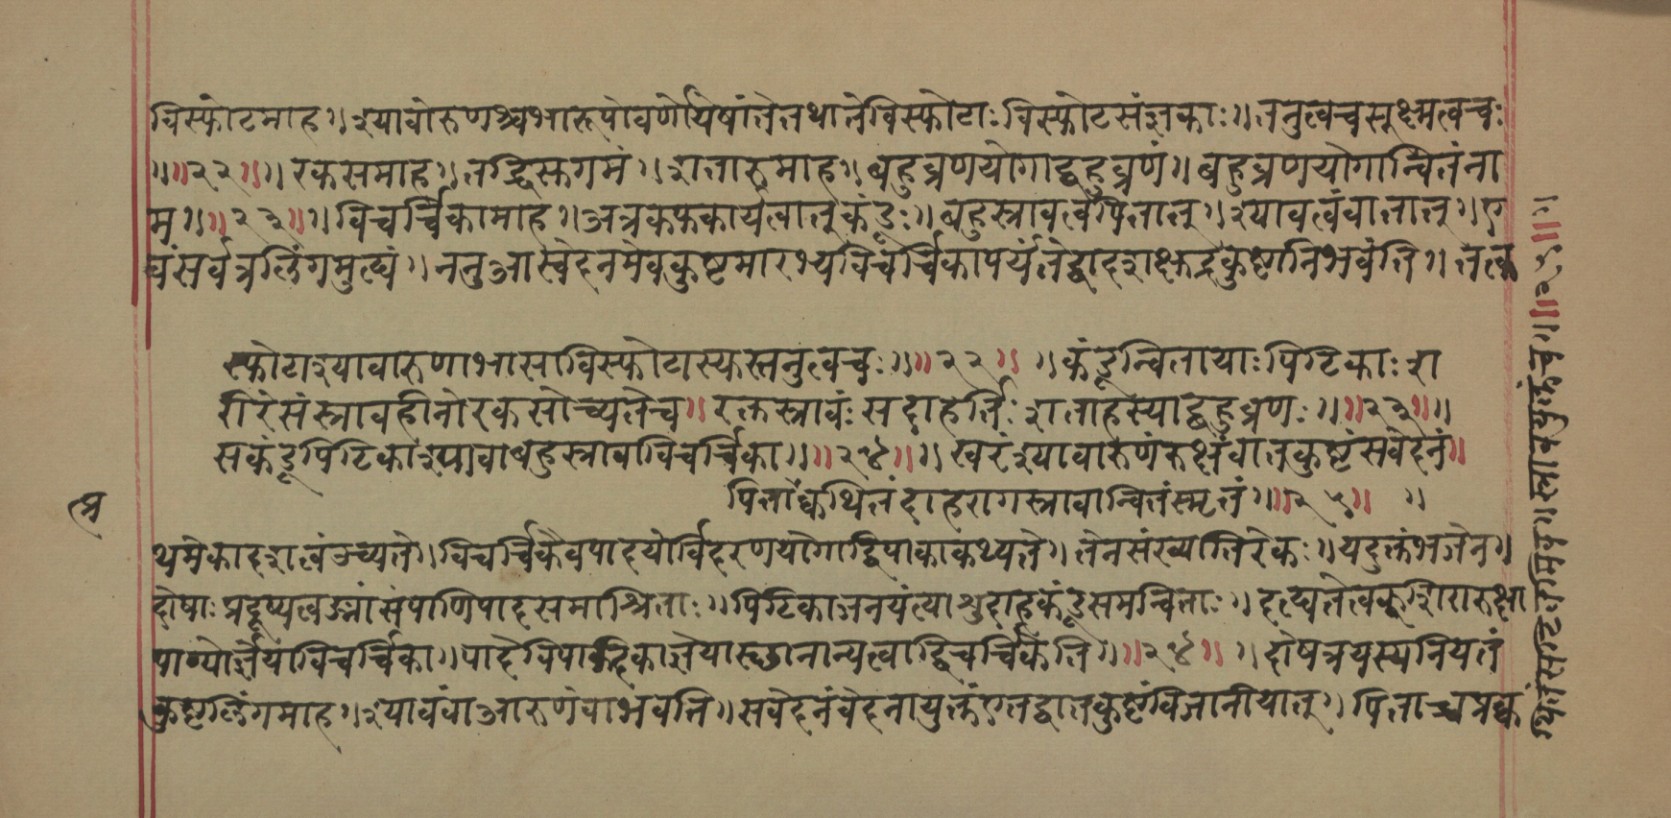 विस्फोटमाह ॥ श्यावोरुणश्चभारूपोवर्णोयेषांतेतथातेविस्फोटाः विस्फोटसंज्ञकाः ॥ तनुत्वचसूक्ष्मत्वचः
॥ ॥ २२ ॥ ॥ रकसमाह ॥ तद्धिस्कगमं ॥ शतारुमाह ॥ बहुव्रणयोगाद्बहुव्रणं ॥ बहुव्रणयोगान्वितंना
म ॥ ॥ २३ ॥ ॥ विचर्च्चिकामाह ॥ अत्रकफकार्यत्वात्कंडूः ॥ बहुस्त्रावत्वंपित्तात् ॥ श्यावत्वंवातात् ॥ ए
वंसर्वत्रलिंगमुत्द्यं ॥ ननुआस्वेदनमेवकुष्टमारभ्यविचर्च्चिकापर्यंतेद्वादशक्षुद्रकुष्टानिभवंति ॥ तत्क
स्फोटाश्यावारुणाभासाविस्फोटास्यस्तनुत्वचः ॥ ॥ २२ ॥ ॥ कंडून्वितायाःपिटिकाःश
रीरंसंस्त्रावहीनोरकसोच्यतेच ॥ रक्तस्त्रावंः सदाहर्तिः शतारुस्याद्बहुव्रणः ॥ ॥ २३ ॥ ॥
सकंडूपिटिकाश्यावाबहुस्त्रावाविचर्च्चिका ॥ ॥ २४ ॥ ॥ खरंश्यावारुणंरुक्षंवातकुष्टंसवेदनं ॥
पित्ताव्क्वथितंदाहरागस्त्रावान्वितंस्मृतं ॥ ॥ २५ ॥ ॥
थमेकादशत्वंउच्यते ॥ विचर्च्चिकैवपादयोर्विहरणयोगाद्विपाकाकथ्यते ॥ तेनसंख्यातिरेकः ॥ यदुक्तंभजेन ॥
दोषाः प्रदूष्यत्वङ्मांसंपाणिपादसमाश्रिताः ॥ पिटिकाजनयंत्याशुदाहकंडूसमन्विताः ॥ दृत्द्यतेत्वक्शिरारुक्षा
पाण्योर्ज्ञेयाविचर्च्चिका ॥ पादेविपादिकाज्ञेयास्छानान्यत्वाद्विचर्च्चिकेति ॥ ॥ २४ ॥ ॥ दोषत्रयस्यनियतं
कुष्टलिंगमाह ॥ श्यावंवाआरुणंवाभवति ॥ सवेदनंवेदनायुक्तंएतद्वातकुष्टंविजानीयात् ॥ पित्ताच्चप्रक्व